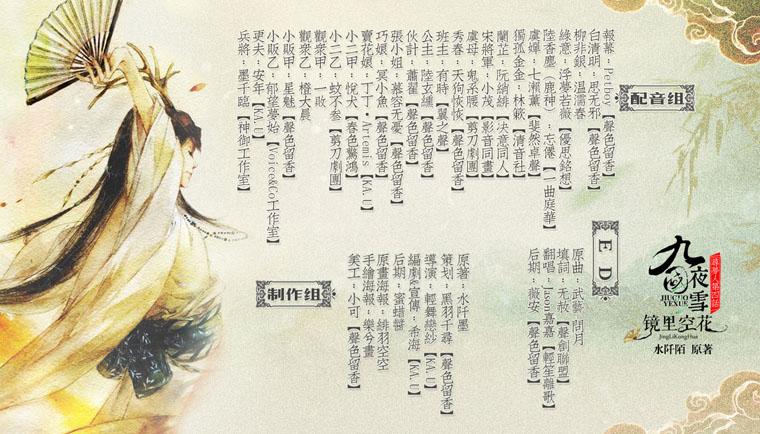 尋夢人第四話
九國夜雪
JIUGUO YEXUE
镜里空花
JingLiKongHua
水阡陌 原著
配音组
報幕：Petboy【聲色留香】
白清明：思无邪【聲色留香】
柳非銀：温濡春
綠意：浮夢若薇【優思銘想】
陸香塵（鹿神）：忘倦【一曲庭華】
虞嬋：七瀨薰【斐然卓聲】
獨孤金金：林簌【清音社】
蘭芷：阮綃緋【決意同人】
宋將軍：小荿【影音同畫】
虞母：鬼系腰【剪刀劇團】
秀春：天狗悏悏【聲色留香】
班主：有時【翼之聲】
公主：陸玄纁【聲色留香】
伙計：蕭翟【聲色留香】
張小姐：慕容无憂【聲色留香】
巧娘：冥小魚【聲色留香】
賣花娘：丁丁·Artemis【KA.U】
小二甲：悅犬【春色驚鴻】
小二乙：蚊不叁【剪刀劇團】
觀衆甲：一啟
觀衆乙：橙大晨
小販甲：星魅【聲色留香】
小販乙：郁望夢始【Voice&Co工作室】
更夫：安年【KA.U】
兵將：墨千臨【神御工作室】
ED
原曲：武藝 閉月
填詞：无赦【聲創聯盟】
翻唱：Tison嘉嘉【輕笙離歌】
后期：薇安【聲色留香】
制作组
原著：水阡墨
策划：黑羽千尋【聲色留香】
導演：輕舞戀紗【KA.U】
編劇&宣傳：希海【KA.U】
后期：蜜蜡醬
原畫海報：緋羽空空
手繪海報：樂兮畫
美工：小可【聲色留香】